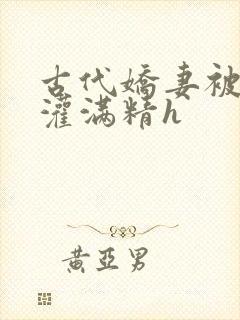 古代嬌妻被
灌滿精h
黃亞男